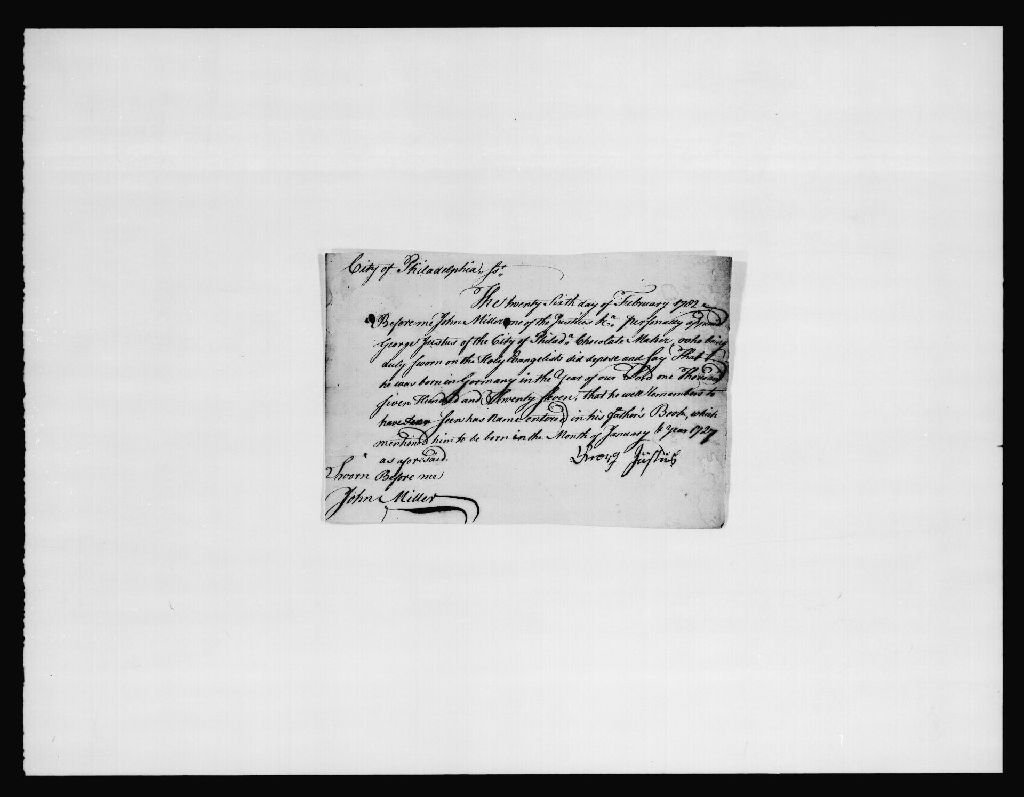 City of Philadelphia, ss.
The twenty Sixth day of February 1782
Before me John Miller one of the Justices &c. personally appeared
George Justus of the City of Philad.a Chocolate Maker, who being
duly sworn on the Holy Evangelists did depose and say That
he was born in Germany in the Year of our Lord one Thousand
seven Hundred and Twenty seven, that he well remembers to
have seen his Name entered in his father's Book, which
mentioned him to be born in the Month of January & Year 1727
as aforesaid.
Georg Justus
Sworn Before me
John Miller